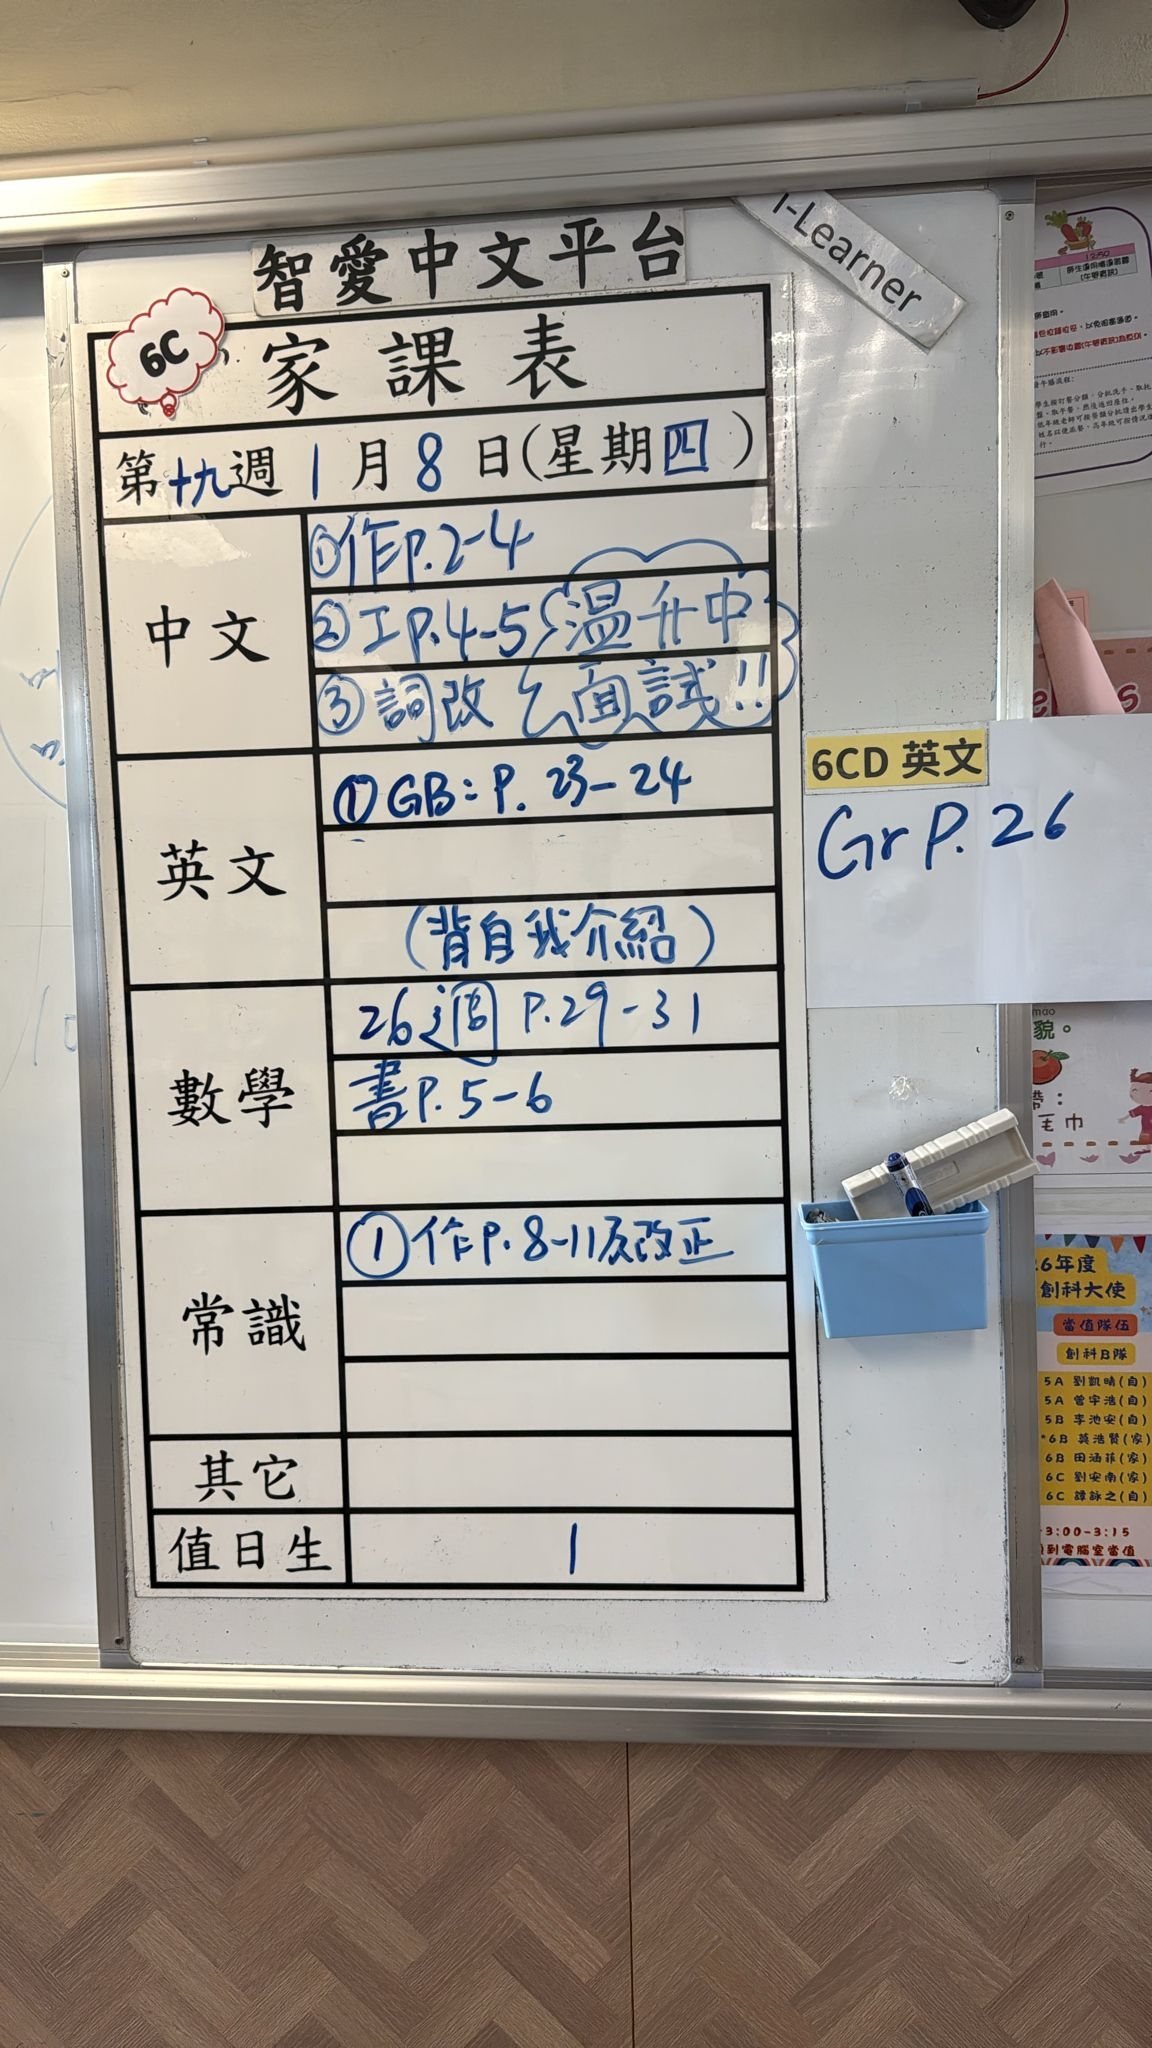 智愛中文平台
i-Learner
6C
家課表
第十九週 1月8日(星期四)
中文
①作P.2-4
②工P.4-5
③詞改
溫升中
面試!!
英文
①GB:P. 23-24
(背自我介紹)
6CD 英文
Gr P. 26
數學
26週 P.29-31
書P.5-6
常識
①作P.8-11及改正
其它
值日生
1
12:50
師生適用
(午膳資訊)
mao
貌。
毛巾
6年度
創科大使
當值隊伍
創科B隊
5A 劉凱晴(自)
5A 曾宇浩(自)
5B 李池安(自)
*6B 莫浩賢(家)
6B 田涵菲(家)
6C 劉安南(家)
6C 譚詠之(自)
3:00-3:15
到電腦室當值